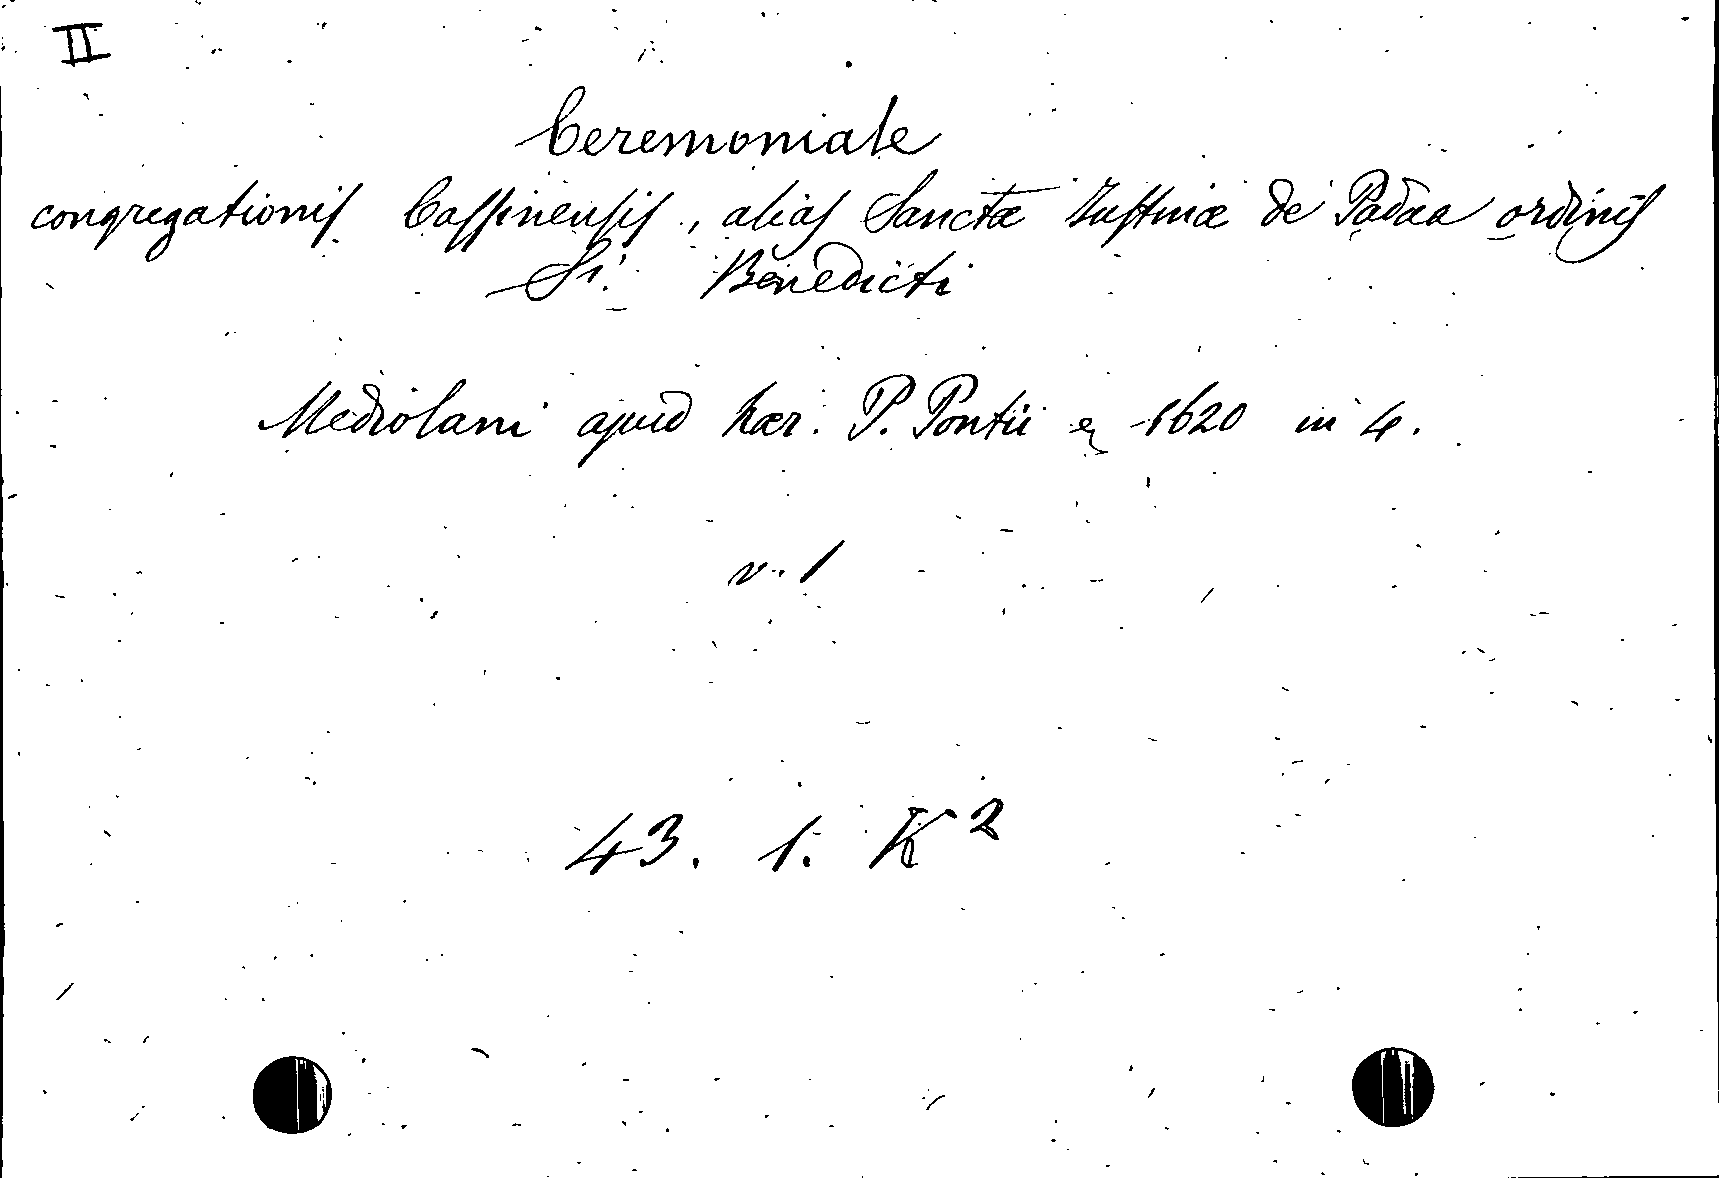 II
Ceremoniale
congregationis Cassinensis, alias Sanctæ Iustinæ de Padua ordinis
S. Benedicti
Mediolani apud hær. P. Pontii & 1620 in 4.
v. 1
43. 1. K²